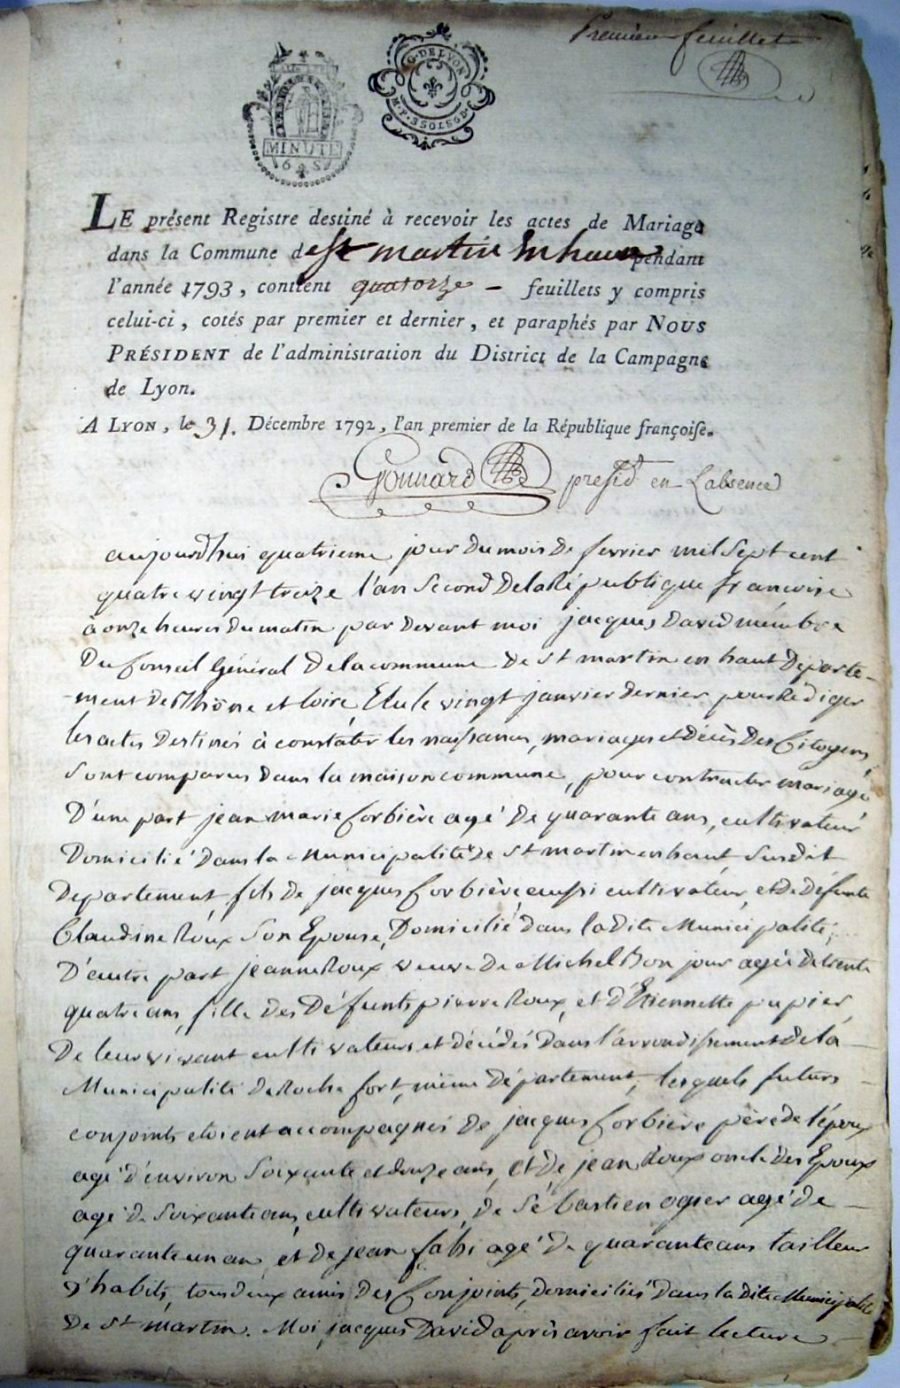 Premier feuillet
G. DE LYON
MINUTE
6 S
LE présent Registre destiné à recevoir les actes de Mariage
dans la Commune de st martin En haut pendant
l'année 1793, contient quatorze - feuillets y compris
celui-ci, cotés par premier et dernier, et paraphés par NOUS
PRÉSIDENT de l'administration du District de la Campagne
de Lyon.
A LYON, le 31. Décembre 1792, l'an premier de la République françoise.
Gonnard présid^t en L'absence
aujourdhui quatrieme jour du mois de fevrier mil Sept cent
quatre vingt treize l'an Second de la République françoise
à onze heures du matin par devant moi jacques David membre
Du Conseil Général De la commune De St martin en haut Departe-
-ment de Rhône et loire Elu le vingt janvier dernier pour Rédiger
les actes Destinés à constater les naissances, mariages et décès Des Citoyens,
Sont comparus dans la maison commune, pour contracter mariage
D'une part jean marie Corbière agé De quarante ans, cultivateur
Domicilié dans la Municipalité de St martin en haut Susdit
Departement, fils de jacques Corbière aussi cultivateur, et de défunte
Claudine Roux Son Epouse, Domicilié dans la dite Municipalité;
D'autre part jeanne Roux veuve De Michel Bon jour agée de trente
quatre ans, fille Des Défunts pierre Roux, et d'Etiennette pupier
De leur vivant cultivateurs et décédés Dans l'arrondissement de la
Municipalité De Rochefort, même département, lesquels futurs
conjoints etoient accompagnés De jacques Corbière père de l'époux
agé d'environ Soixante et douze ans, et de jean Roux oncle Des Epoux
agé de Soixante ans, cultivateurs, de Sébastien ogier agé de
quarante un an, et de jean fahi agé De quarante ans tailleur
D'habits, tous deux amis Des Conjoints, domiciliés Dans la dite Municipalité
De St martin. Moi jacques David après avoir fait lecture